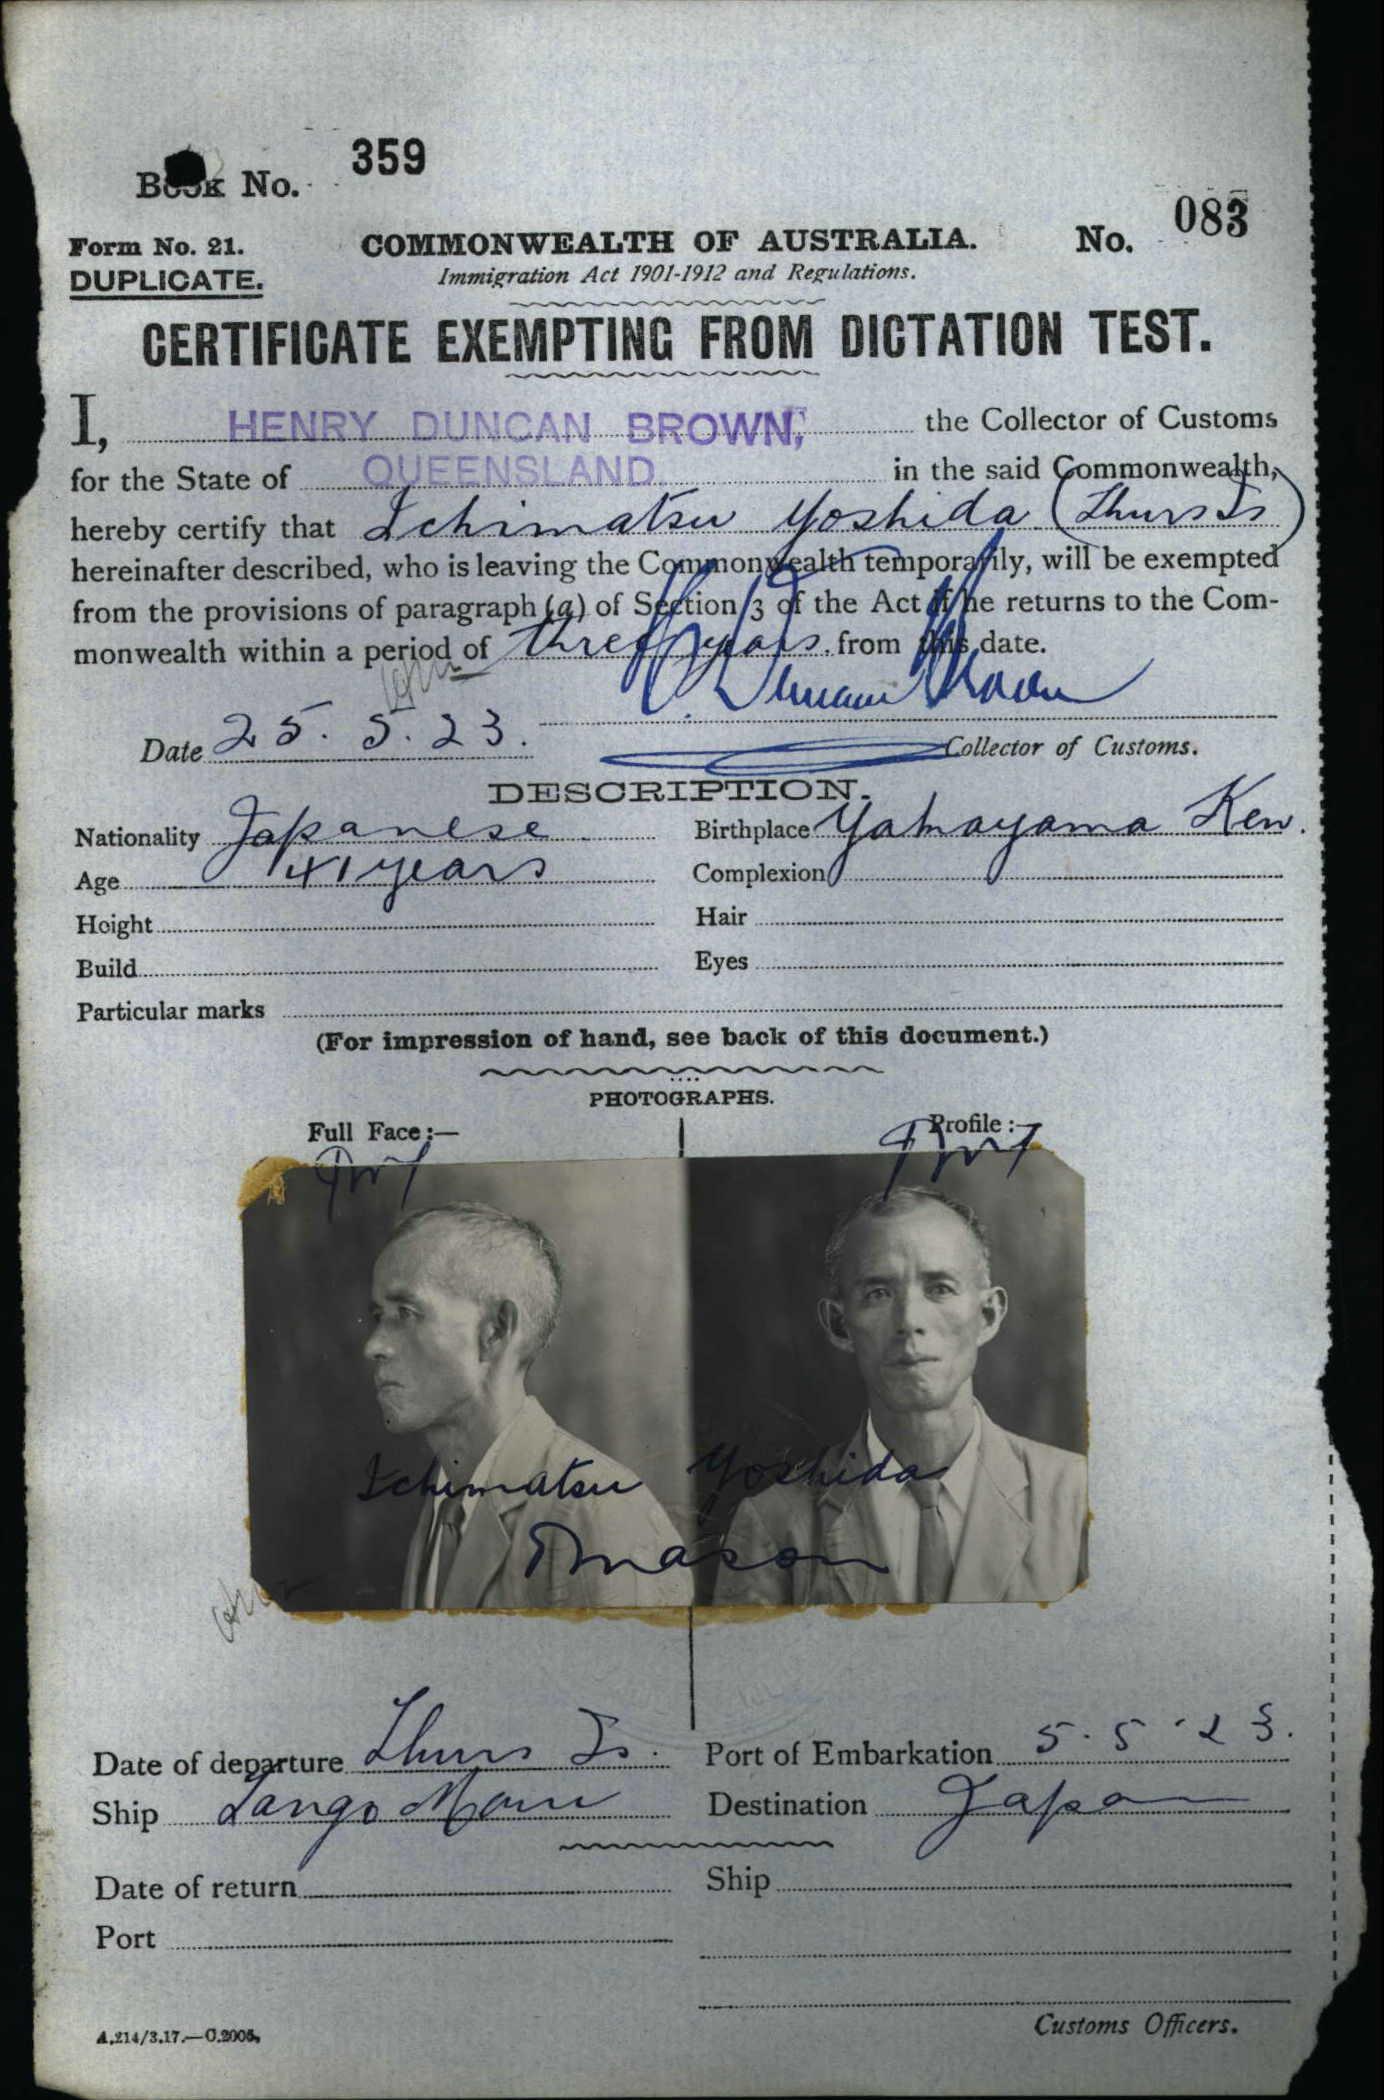 Book No. 359
Form No. 21. COMMONWEALTH OF AUSTRALIA. No. 083
DUPLICATE. Immigration Act 1901-1912 and Regulations.
CERTIFICATE EXEMPTING FROM DICTATION TEST.
I, HENRY DUNCAN BROWN, the Collector of Customs
for the State of QUEENSLAND. in the said Commonwealth,
hereby certify that Ichimatsu Yoshida (Thurs Is)
hereinafter described, who is leaving the Commonwealth temporarily, will be exempted
from the provisions of paragraph (a) of Section 3 of the Act if he returns to the Com-
monwealth within a period of three years from this date.
H. Duncan Brown
Date 25.5.23. Collector of Customs.
DESCRIPTION.
Nationality Japanese Birthplace Yamayama Ken.
Age 41 years Complexion
Height Hair
Build Eyes
Particular marks
(For impression of hand, see back of this document.)
PHOTOGRAPHS.
Full Face:— Profile:—
Ichimatsu Yoshida
Date of departure Thurs Is. Port of Embarkation 5.5.23.
Ship Tango Maru Destination Japan
Date of return Ship
Port
Customs Officers.
A.214/3.17.—C.2005.